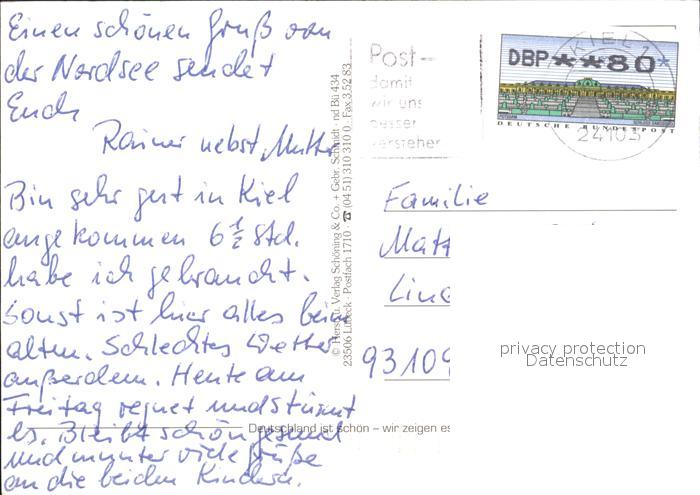 Einen schönen Gruß von
der Nordsee sendet
Euch
Rainer nebst Mutter
Bin sehr gut in Kiel
angekommen 6 1/2 Std.
habe ich gebraucht.
Sonst ist hier alles beim
alten. Schlechtes Wetter
außerdem. Heute am
Freitag regnet und stürmt
es. Bleibt schön gesund
und munter viele Grüße
an die beiden Kinder.
© Herst. u. Verlag Schöning & Co. + Gebr. Schmidt · nd Bü 434
23506 Lübeck · Postfach 1710 · ☎ (04 51) 310 310 0 · Fax 3 52 83
Post-
damit
wir uns
besser
verstehen
KIEL 1
24103
DBP**80*
DEUTSCHE BUNDESPOST
Familie
Matt
Lind
93109
privacy protection
Datenschutz
Deutschland ist schön – wir zeigen es